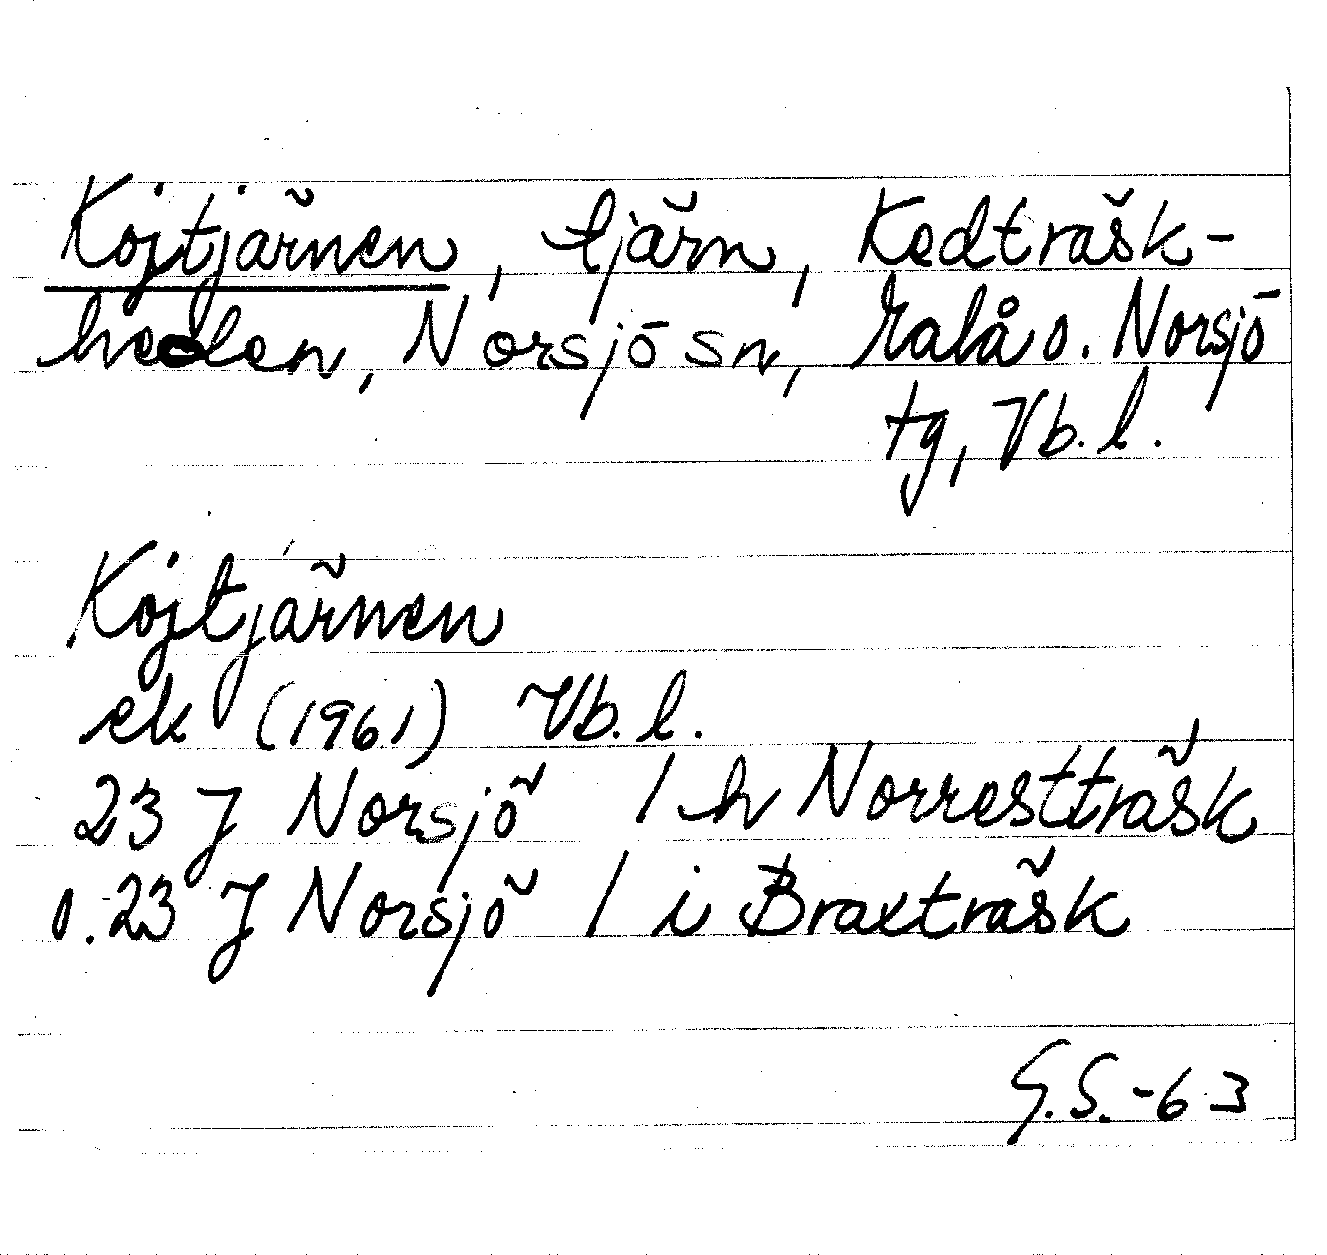 Kojtjärnen, tjärn, Kedträsk-
heden, Norsjö sn, Malå o. Norsjö
tg, Vb. l.
Kojtjärnen
ek (1961) Vb. l.
23 J Norsjö / h Norrestträsk
o. 23 J Norsjö / i Braxträsk
G.S.-63